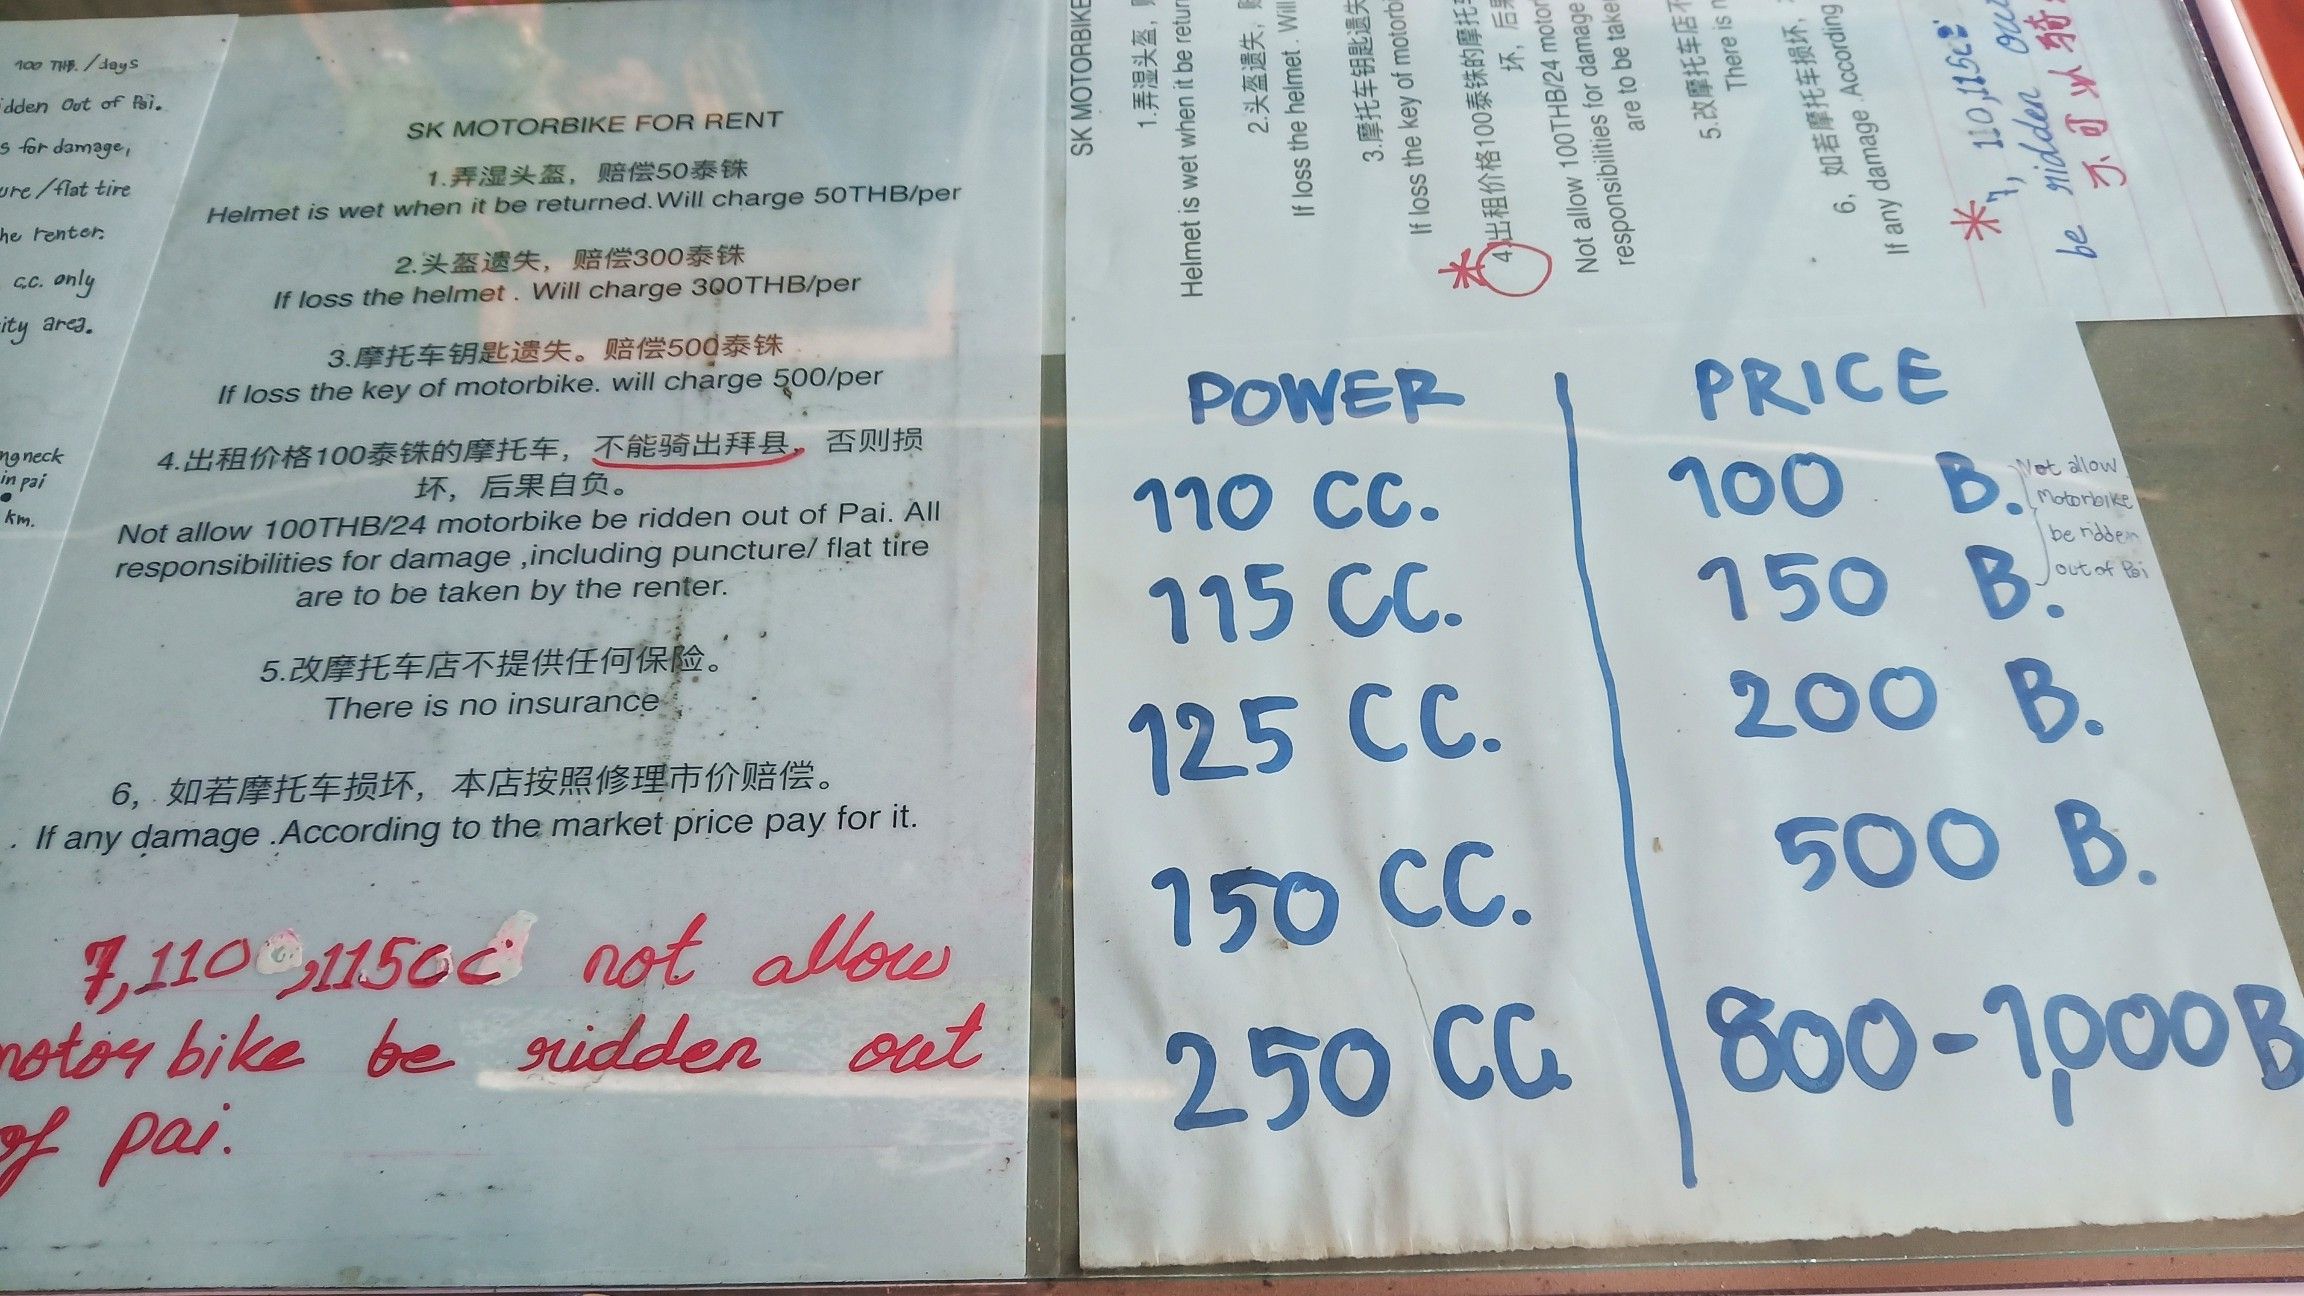 100 THB./days
Out of Pai.
for damage,
/flat tire
renter.
c.c. only
area.
neck
in pai
km.
SK MOTORBIKE FOR RENT
1.弄湿头盔，赔偿50泰铢
Helmet is wet when it be returned.Will charge 50THB/per
2.头盔遗失，赔偿300泰铢
If loss the helmet . Will charge 300THB/per
3.摩托车钥匙遗失。赔偿500泰铢
If loss the key of motorbike. will charge 500/per
4.出租价格100泰铢的摩托车，不能骑出拜县，否则损
坏，后果自负。
Not allow 100THB/24 motorbike be ridden out of Pai. All
responsibilities for damage ,including puncture/ flat tire
are to be taken by the renter.
5.改摩托车店不提供任何保险。
There is no insurance
6，如若摩托车损坏，本店按照修理市价赔偿。
. If any damage .According to the market price pay for it.
7,110 ,115cc not allow
motor bike be ridden out
of pai.
SK MOTORBIKE
1.弄湿头盔，
Helmet is wet when it be
2.头盔遗失，
If loss the helmet . Will
3.摩托车钥匙遗失
If loss the key of
4出租价格100泰铢的摩托车
坏，后果
Not allow 100THB/24
responsibilities for damage
are to be taken
5.改摩托车店不
There is
6，如若摩托车损坏，
If any damage .According
7, 110,115cc
be ridden out
不可以骑
POWER PRICE
110 CC. 100 B.
115 CC. 150 B.
125 CC. 200 B.
150 CC. 500 B.
250 CC. 800-1,000B
Not allow
Motorbike
be ridden
out of Pai